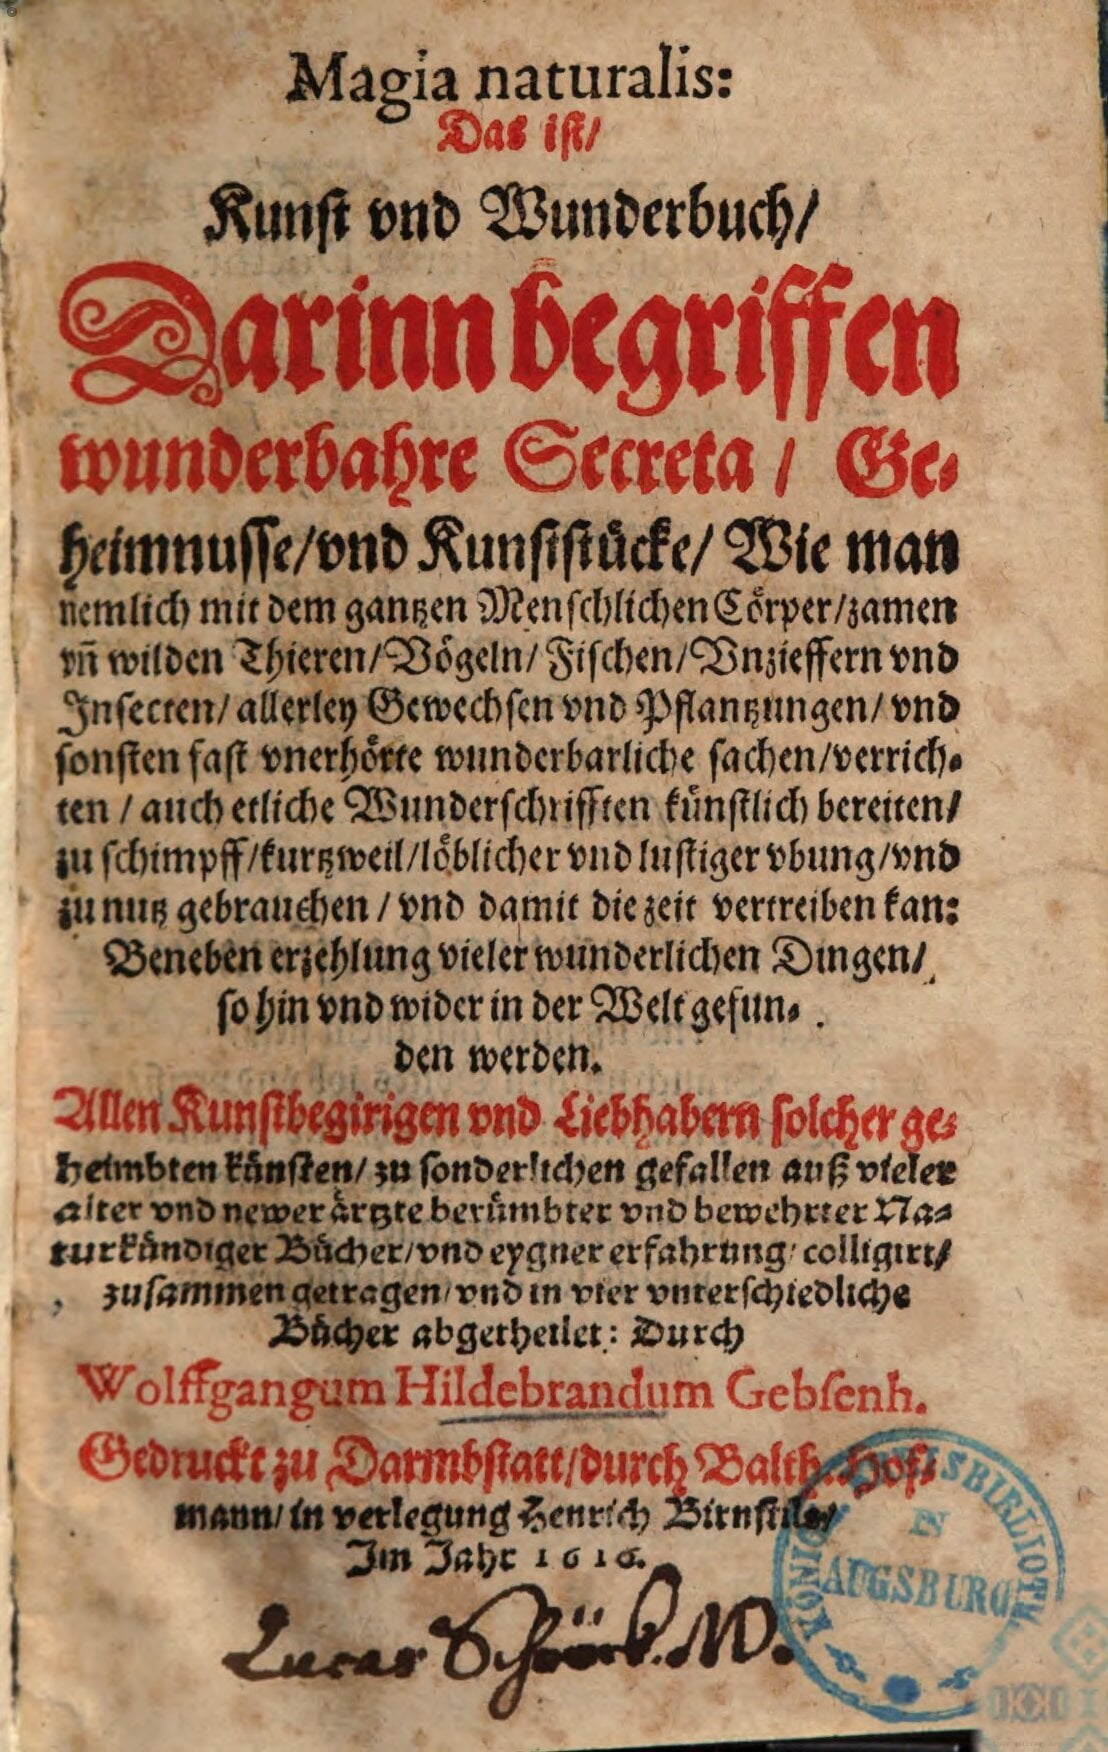 Magia naturalis:
Das ist/
Kunst vnd Wunderbuch/
Darinn begriffen
wunderbahre Secreta / Ge-
heimnusse/vnd Kunststücke/ Wie man
nemlich mit dem gantzen Menschlichen Cörper/zamen
vñ wilden Thieren/Vögeln/ Fischen/ Vnzieffern vnd
Insecten/ allerley Gewechsen vnd Pflantzungen/ vnd
sonsten fast vnerhörte wunderbarliche sachen/verrich-
ten / auch etliche Wunderschrifften künstlich bereiten/
zu schimpff/kurtzweil/löblicher vnd lustiger vbung/vnd
zu nutz gebrauchen / vnd damit die zeit vertreiben kan:
Beneben erzehlung vieler wunderlichen Dingen/
so hin vnd wider in der Welt gefun-
den werden.
Allen Kunstbegirigen vnd Liebhabern solcher ge-
heimbten künsten/ zu sonderlichen gefallen auß vieler
alter vnd newer ärtzte berümbter vnd bewehrter Na-
turkündiger Bücher/vnd eygner erfahrung/ colligirt/
zusammen getragen/vnd in vier vnterschiedliche
Bücher abgetheilet: Durch
Wolffgangum Hildebrandum Gebsenh.
Gedruckt zu Darmbstatt/durch Balth. Hof-
mann/ in verlegung Henrich Birnstils/
Im Jahr 1616.
Lucas Schröck. M D.
KÖNIGL. KREISBIBLIOTH.
IN
AUGSBURG